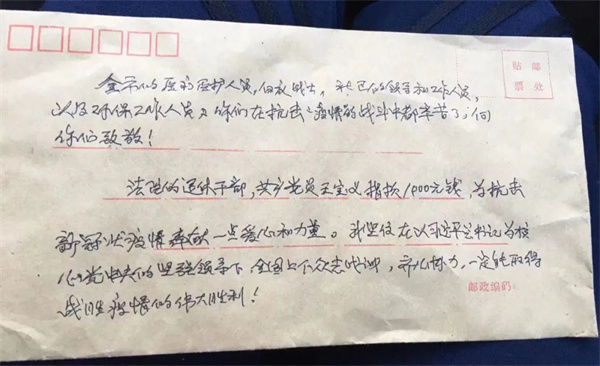 贴 邮
票 处
全市的医药医护人员,
工作人员,
以及环保工作人员,你们在抗击疫情的战斗中都辛苦了,向
你们致敬!
法院的退休干部,共产党员王宝义捐款1000元钱,为抗击
新冠状疫情奉献一些爱心和力量。我坚信在以习近平总书记为核
心党中央的坚强领导下,全国上下众志成城,齐心协力,一定能取得
战胜疫情的伟大胜利!
邮政编码